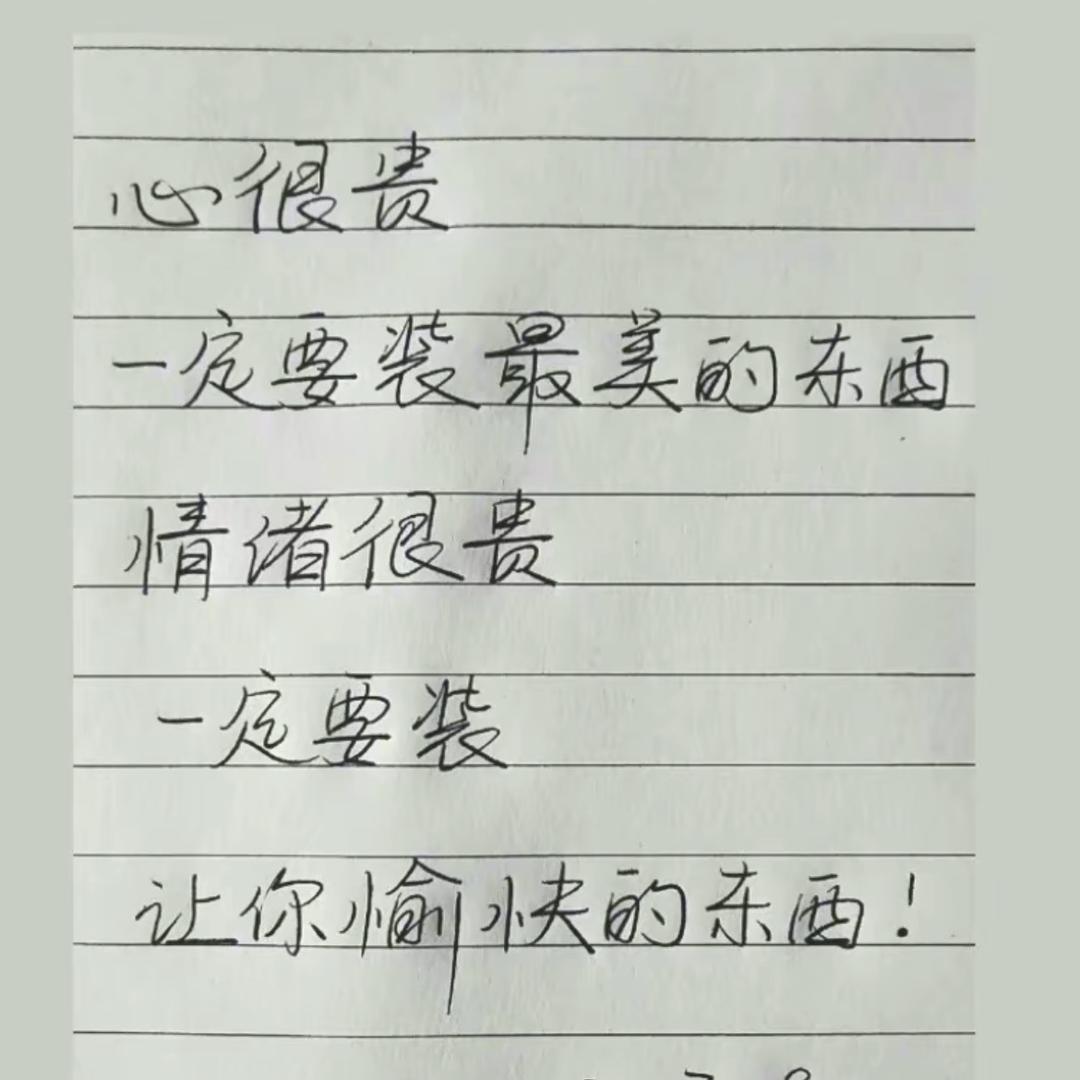 心很贵
一定要装最美的东西
情绪很贵
一定要装
让你愉快的东西!